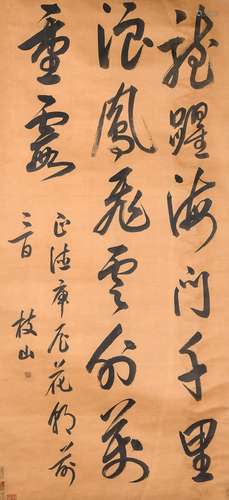 龍躍海門千里
浪鳳飛雲外萬
重霞
正德庚辰花朝前
三日
枝山